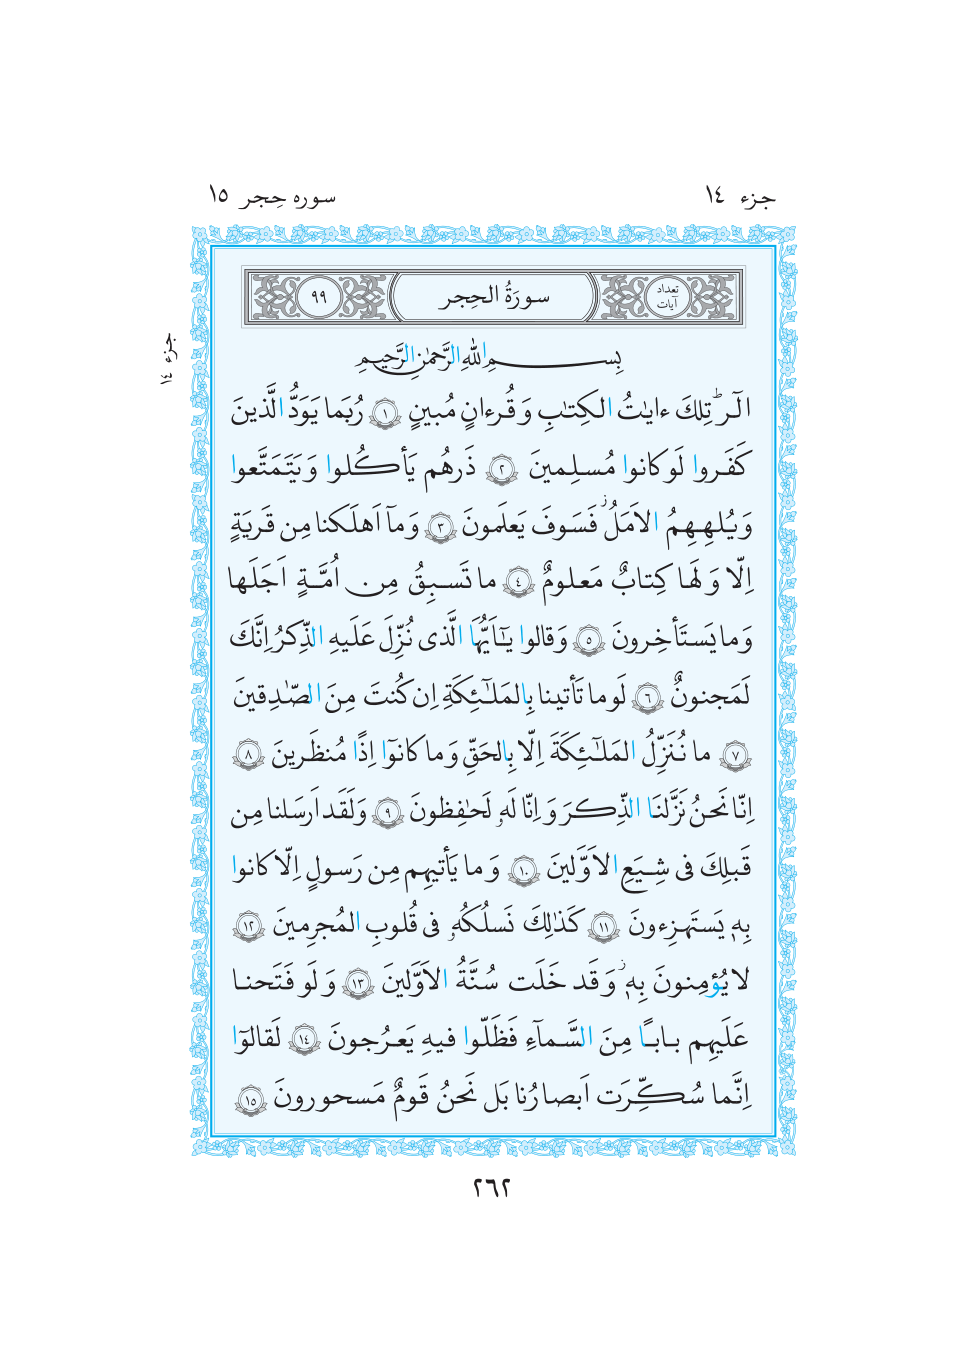 جزء ١٤
سوره حِجر ١٥
جزء ١٤
تعداد
آیات
سورَةُ الحِجر
٩٩
بِسمِ اللهِ الرَّحمٰنِ الرَّحیمِ
الٓـرٰ ۚ تِلكَ ءایٰتُ الكِتٰبِ وَ قُرءانٍ مُبینٍ ١ رُبَما یَوَدُّ الَّذینَ
كَفَروا لَو كانوا مُسلِمینَ ٢ ذَرهُم یَأكُلوا وَ یَتَمَتَّعوا
وَ یُلهِهِمُ الاَمَلُ ۖ فَسَوفَ یَعلَمونَ ٣ وَ مآ اَهلَكنا مِن قَریَةٍ
اِلّا وَ لَها كِتابٌ مَعلومٌ ٤ ما تَسبِقُ مِن اُمَّةٍ اَجَلَها
وَ ما یَستَأخِرونَ ٥ وَ قالوا یٰٓاَیُّهَا الَّذی نُزِّلَ عَلَیهِ الذِّكرُ اِنَّكَ
لَمَجنونٌ ٦ لَو ما تَأتینا بِالمَلٰٓئِكَةِ اِن كُنتَ مِنَ الصّٰدِقینَ
٧ ما نُنَزِّلُ المَلٰٓئِكَةَ اِلّا بِالحَقِّ وَ ما كانوٓا اِذًا مُنظَرینَ ٨
اِنّا نَحنُ نَزَّلنَا الذِّكرَ وَ اِنّا لَهٗ لَحٰفِظونَ ٩ وَ لَقَد اَرسَلنا مِن
قَبلِكَ فی شِیَعِ الاَوَّلینَ ١٠ وَ ما یَأتیهِم مِن رَسولٍ اِلّا كانوا
بِهٖ یَستَهزِءونَ ١١ كَذٰلِكَ نَسلُكُهٗ فی قُلوبِ المُجرِمینَ ١٢
لا یُؤمِنونَ بِهٖ ۖ وَ قَد خَلَت سُنَّةُ الاَوَّلینَ ١٣ وَ لَو فَتَحنا
عَلَیهِم بابًا مِنَ السَّمآءِ فَظَلّوا فیهِ یَعرُجونَ ١٤ لَقالوٓا
اِنَّما سُكِّرَت اَبصارُنا بَل نَحنُ قَومٌ مَسحورونَ ١٥
٢٦٢